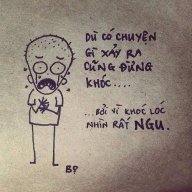 DÙ CÓ CHUYỆN
GÌ XẢY RA
CŨNG ĐỪNG
KHÓC....
...BỞI VÌ KHÓC LÓC
NHÌN RẤT NGU.
BP